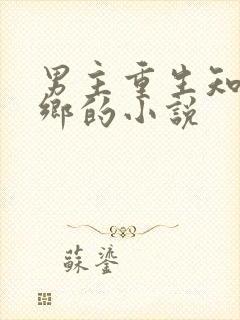 男主重生知
鄉的小說
蘇鎏